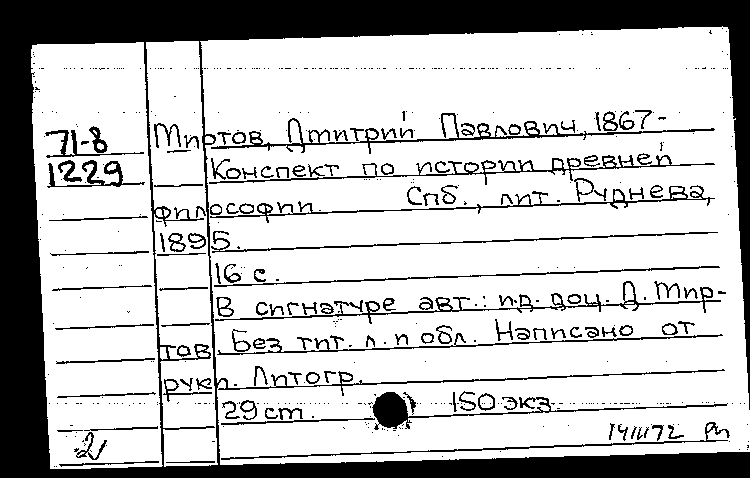 71-8 Миртов, Дмитрий Павлович, 1867-
1229 Конспект по истории древней
философии. Спб., лит. Руднева,
1895.
16 с.
В сигнатуре авт.: и.д. доц. Д. Мир-
тов. Без тит. л. и обл. Написано от
руки. Литогр.
29 cm. 150 экз.
2